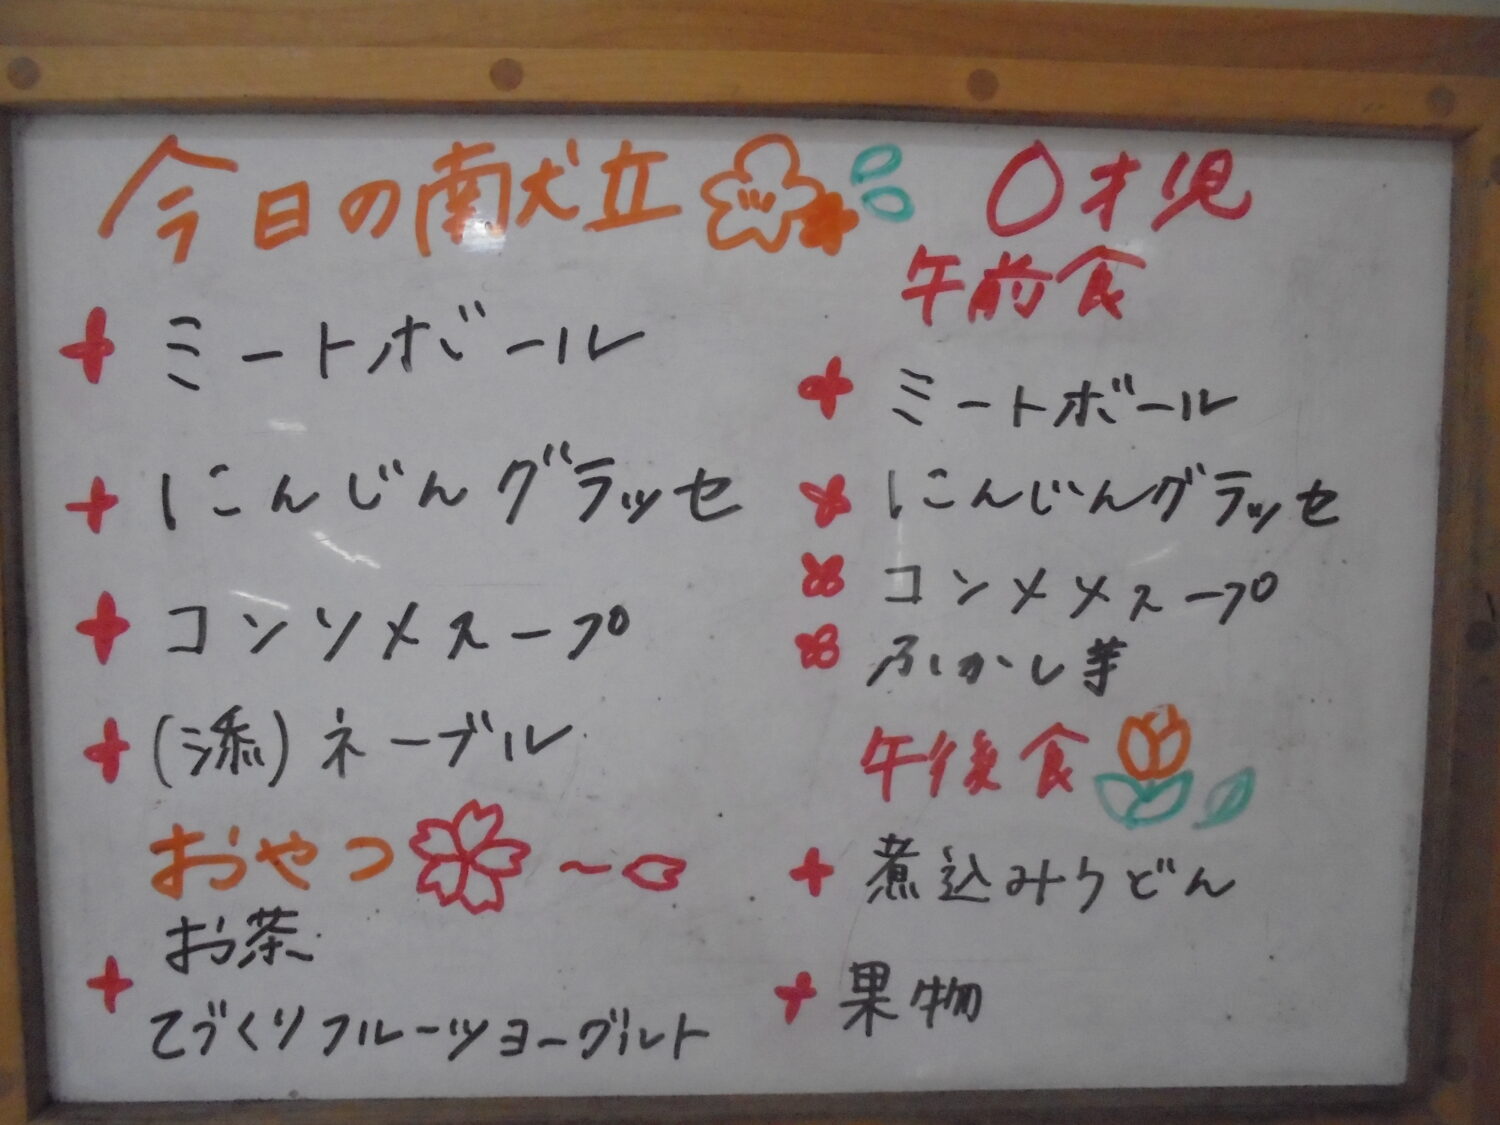 今日の献立
ミートボール
にんじんグラッセ
コンソメスープ
(添)ネーブル
おやつ
お茶
てづくりフルーツヨーグルト
0才児
午前食
ミートボール
にんじんグラッセ
コンメメスープ
ふかし芋
午後食
煮込みうどん
果物